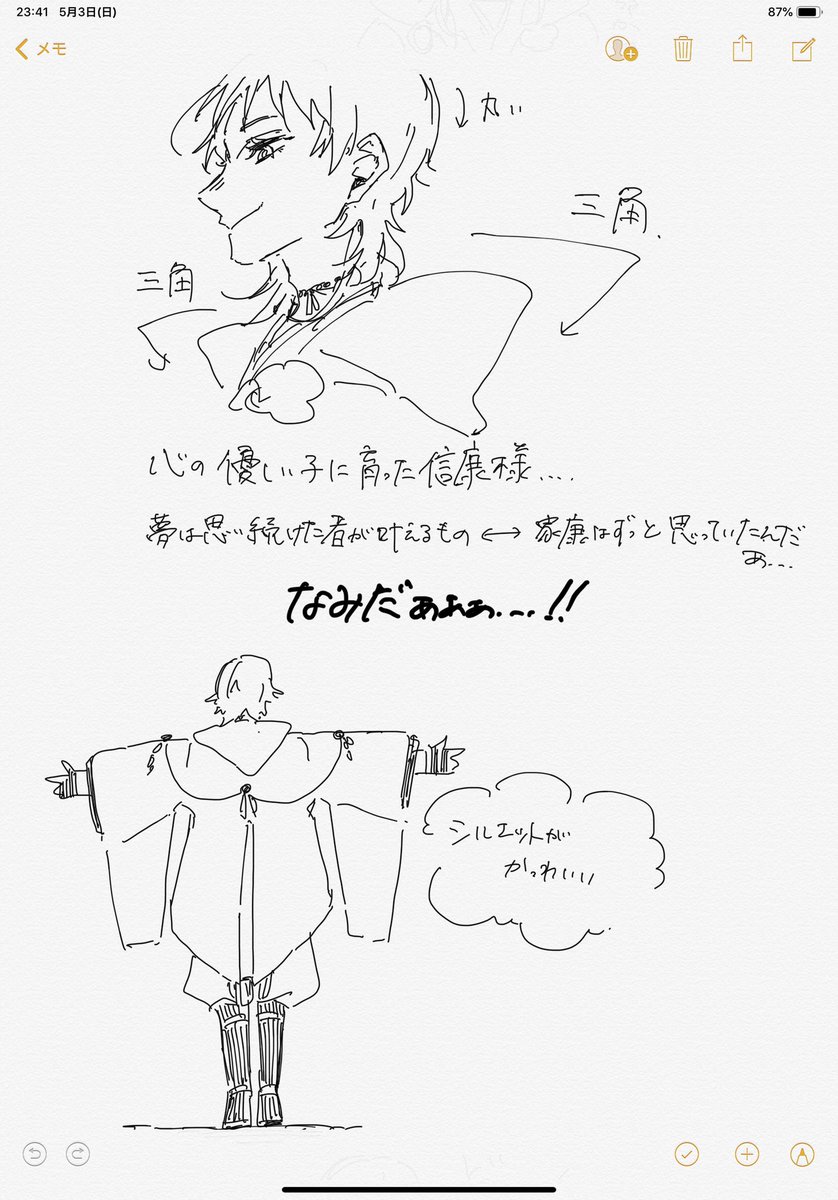 23:41 5月3日(日)
87%
メモ
三角.
三角
心の優しい子に育った信康様....
夢は思い続けた者が叶えるもの ⟷ 家康はずっと思っていたんだ
あ...
なみだぁぁぁ...!!
シルエットが
かっわいい